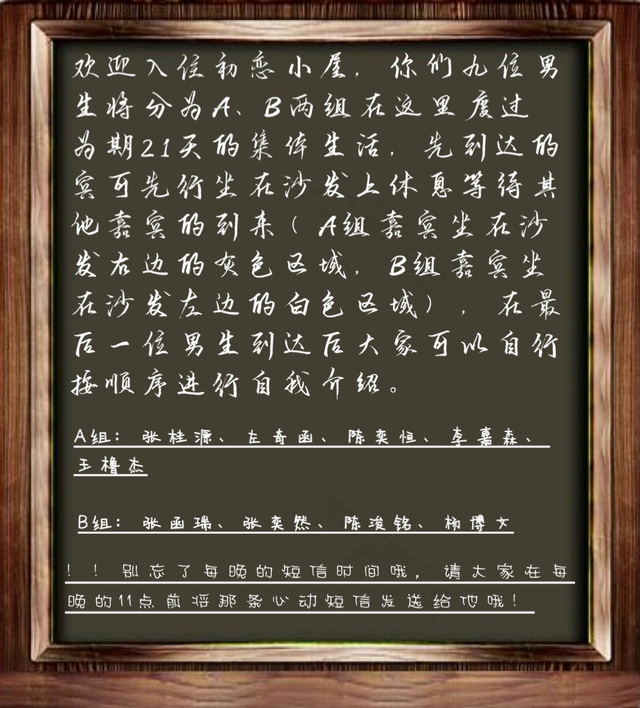 欢迎入住初恋小屋，你们九位男
生将分为A、B两组在这里度过
为期21天的集体生活，先到达的
宾可先行坐在沙发上休息等待其
他嘉宾的到来（A组嘉宾坐在沙
发右边的灰色区域，B组嘉宾坐
在沙发左边的白色区域），在最
后一位男生到达后大家可以自行
按顺序进行自我介绍。
A组：张桂源、左奇函、陈奕恒、李嘉森、
王橹杰
B组：张函瑞、张奕然、陈浚铭、杨博文
！！别忘了每晚的短信时间哦，请大家在每
晚的11点前将那条心动短信发送给他哦！